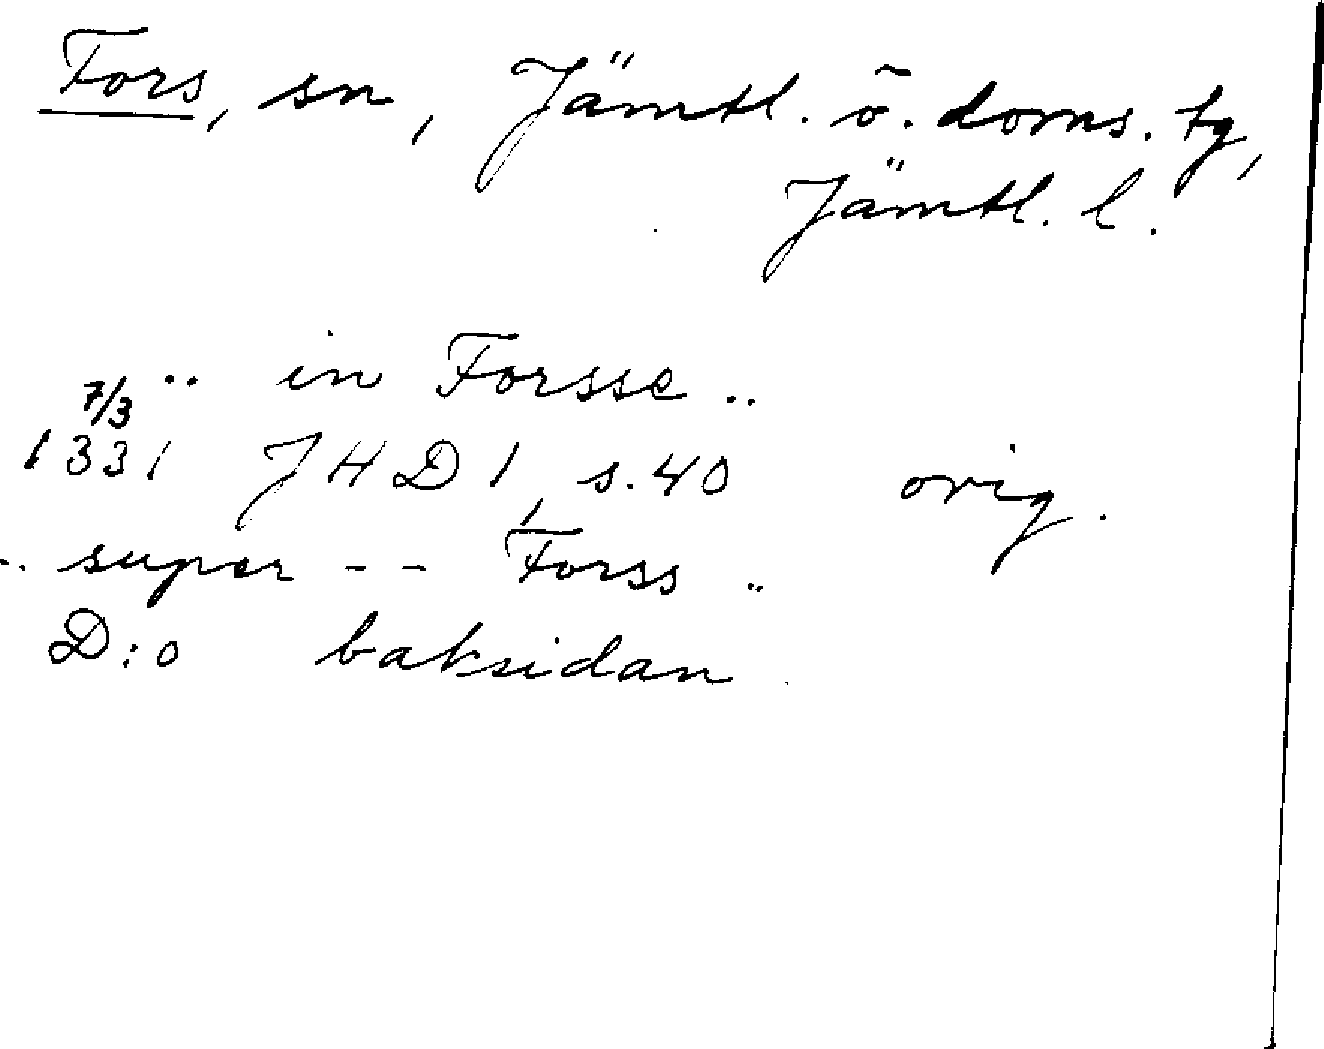 Fors, sn, Jämtl. ö. doms. tg,
Jämtl. l.
.. in Forsse ..
7/3
1331 JHD 1, s. 40 orig.
.. super -- Forss ..
D:o baksidan